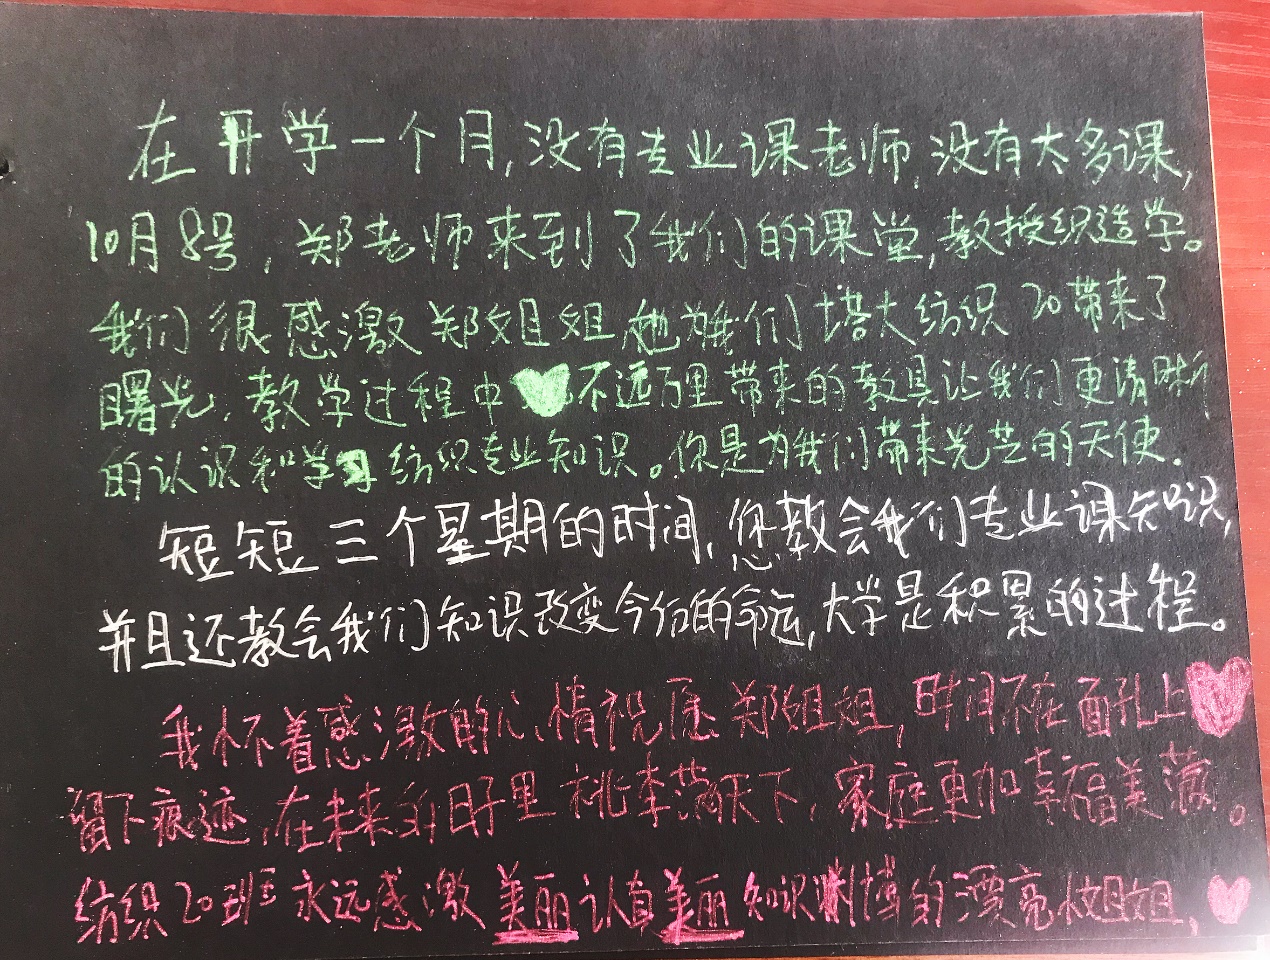 在开学一个月,没有专业课老师,没有太多课,
10月8号,郑老师来到了我们的课堂,教授织造学。
我们很感激郑姐姐她为我们塔大纺织20带来了
曙光,教学过程中不远万里带来的教具让我们更清晰
的认识和学习纺织专业知识。你是为我们带来光芒的天使.
短短三个星期的时间,您教会我们专业课知识,
并且还教会我们知识改变今后的命运,大学是积累的过程。
我怀着感激的心情祝愿郑姐姐,时间不在面孔上
留下痕迹,在未来的日子里桃李满天下,家庭更加幸福美满。
纺织20班永远感激美丽认真美丽知识渊博的漂亮小姐姐,